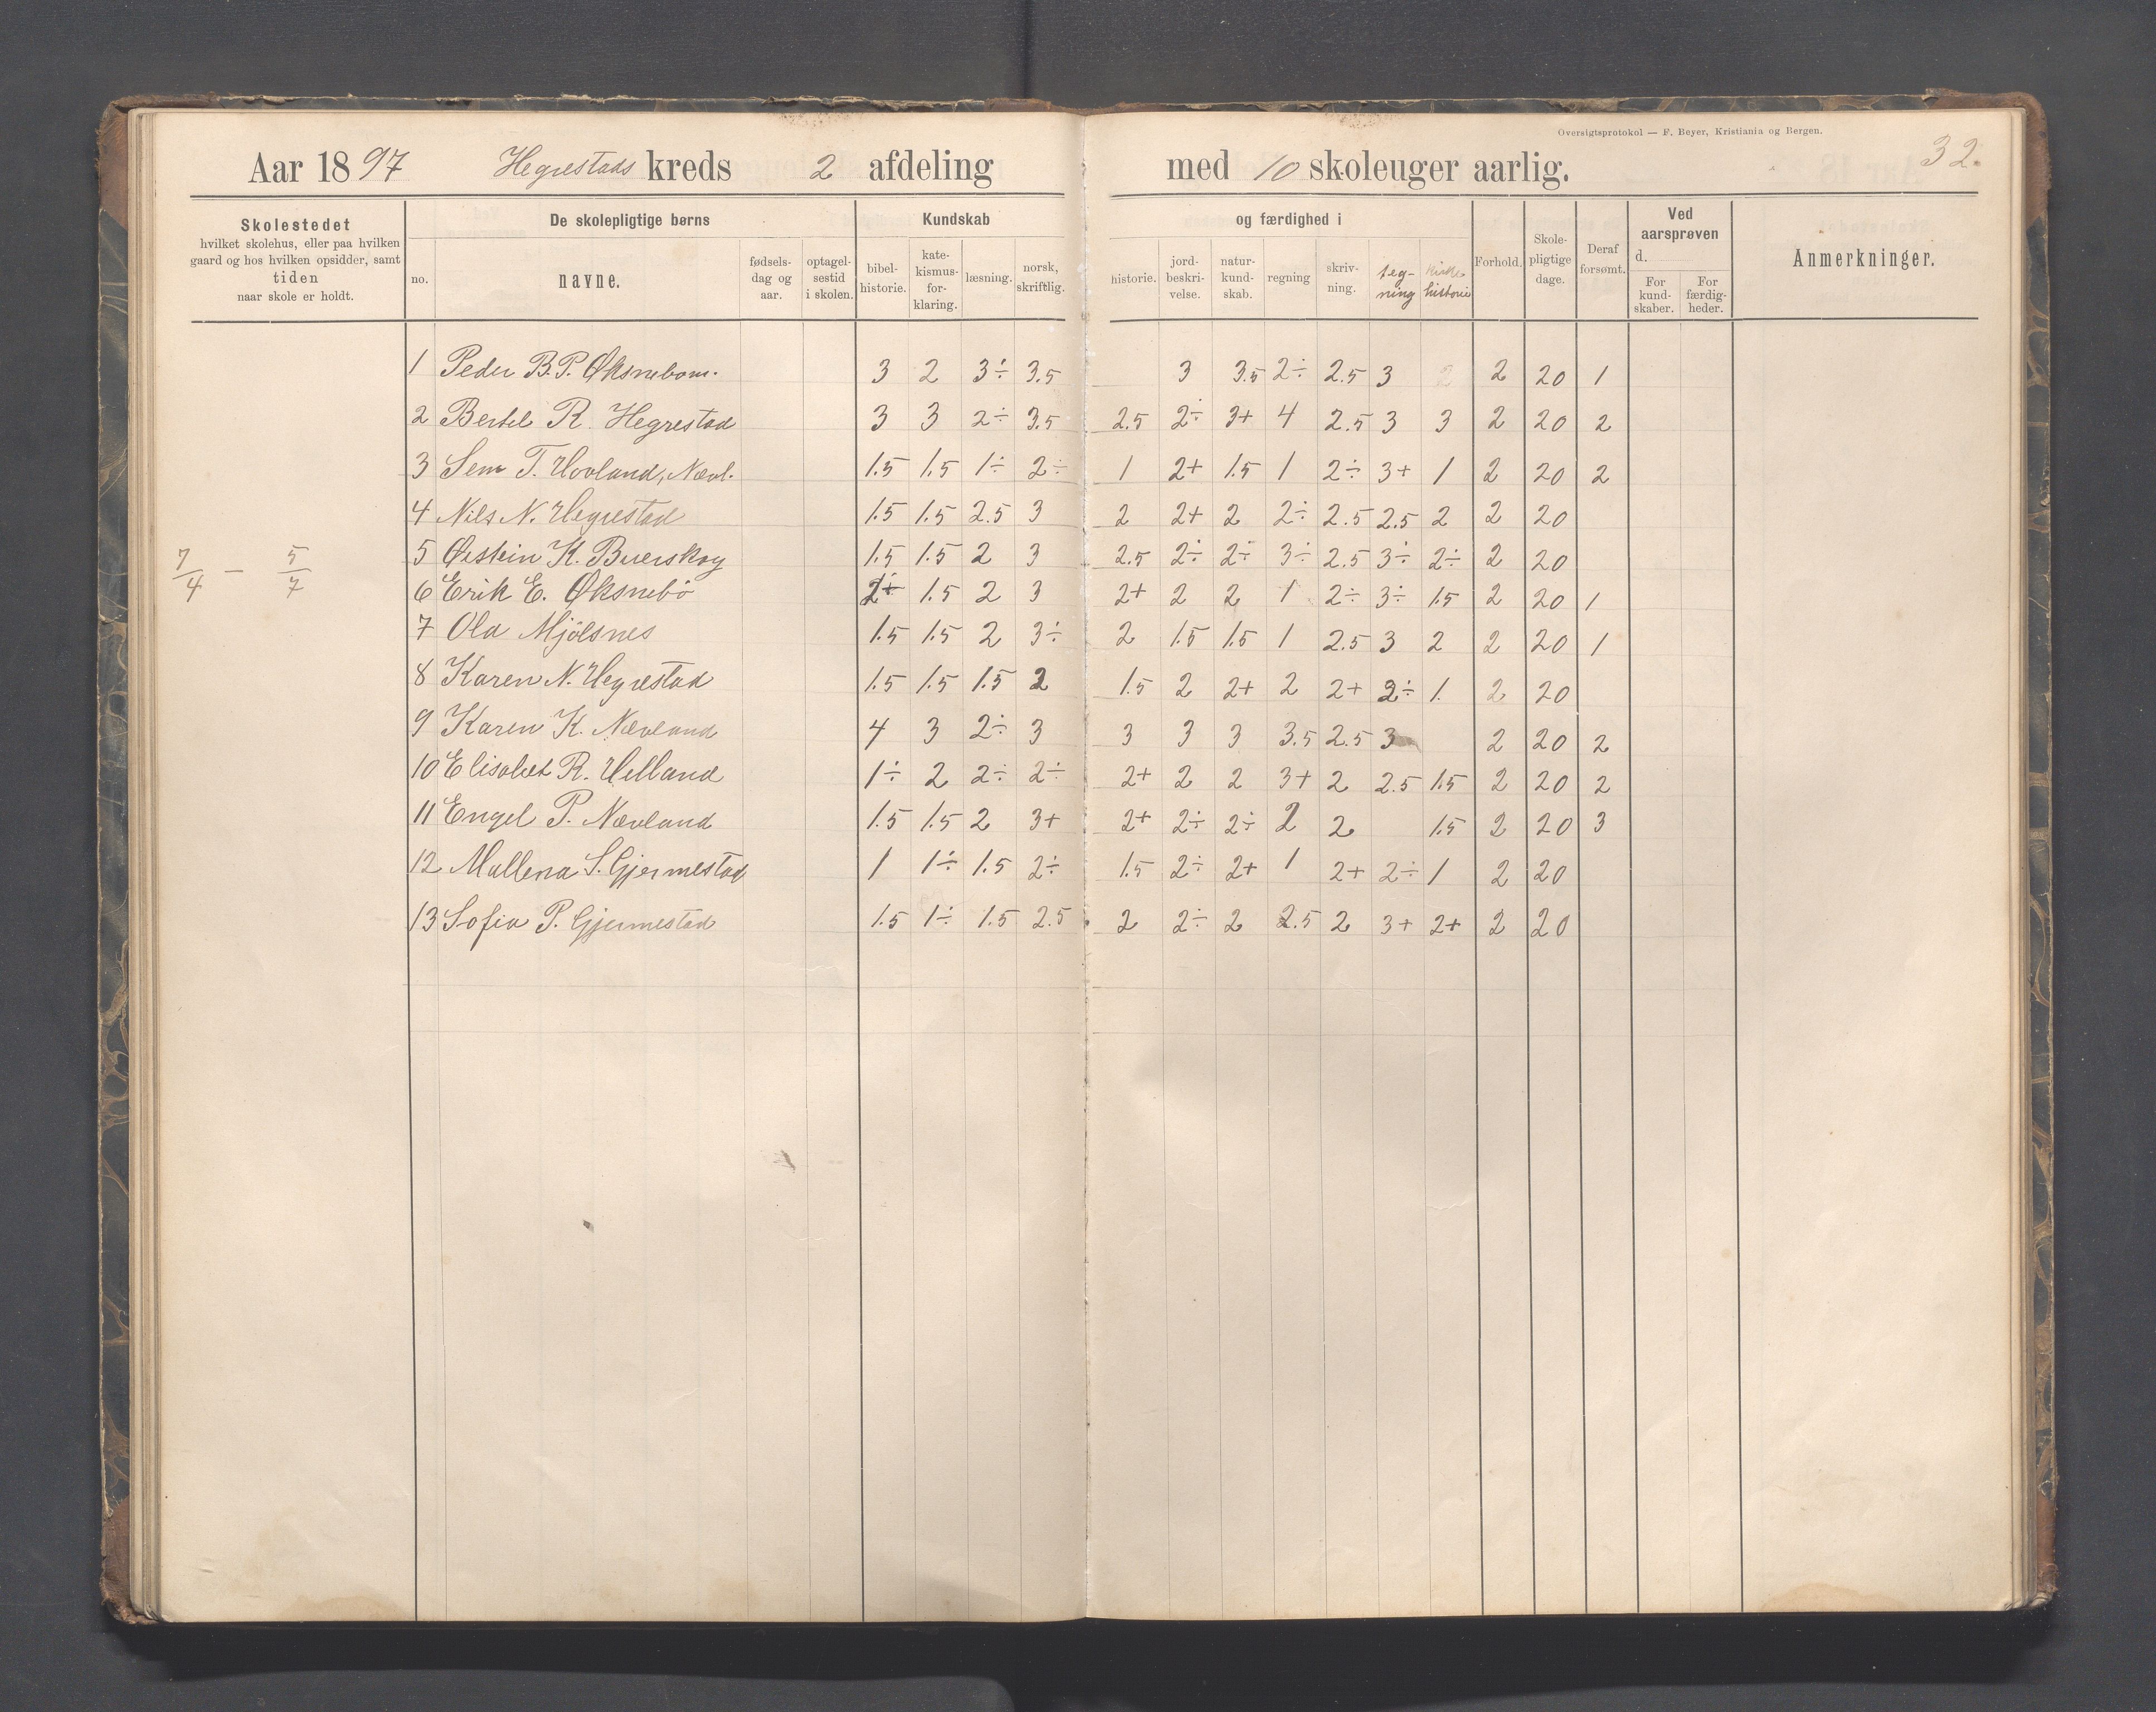 Oversigtsprotokol — F. Beyer, Kristiania og Bergen.
32.
Aar 1897 Hegrestads kreds 2 afdeling med 10 skoleuger aarlig.
Skolestedet
hvilket skolehus, eller paa hvilken
gaard og hos hvilken opsidder, samt
tiden
naar skole er holdt.
De skolepligtige børns
no.
navne.
fødsels-
dag og
aar.
optagel-
sestid
i skolen.
Kundskab
bibel-
historie.
kate-
kismus-
for-
klaring.
læsning.
norsk,
skriftlig.
og færdighed i
historie.
jord-
beskri-
velse.
natur-
kund-
skab.
regning
skriv-
ning.
teg-
ning
Kirke
historie
Forhold.
Skole-
pligtige
dage.
Deraf
forsømt.
Ved
aarsprøven
d.
For
kund-
skaber.
For
færdig-
heder.
Anmerkninger.
7/4 — 5/7
1 Peder B.P. Øksnebom. 3 2 3÷ 3.5 3 3.5 2÷ 2.5 3 2 2 20 1
2 Bertel R. Hegrestad 3 3 2÷ 3.5 2.5 2÷ 3+ 4 2.5 3 3 2 20 2
3 Sem T. Hovland, Nævl. 1.5 1.5 1÷ 2÷ 1 2+ 1.5 1 2÷ 3+ 1 2 20 2
4 Nils N. Hegrestad 1.5 1.5 2.5 3 2 2+ 2 2÷ 2.5 2.5 2 2 20
5 Østein K. Buerskog 1.5 1.5 2 3 2.5 2÷ 2÷ 3÷ 2.5 3÷ 2÷ 2 20
6 Erik E. Øksnebö 2+ 1.5 2 3 2+ 2 2 1 2÷ 3÷ 1.5 2 20 1
7 Ola Mjölsnes 1.5 1.5 2 3÷ 2 1.5 1.5 1 2.5 3 2 2 20 1
8 Karen N. Hegrestad 1.5 1.5 1.5 2 1.5 2 2+ 2 2+ 2÷ 1. 2 20
9 Karen K. Nævland 4 3 2÷ 3 3 3 3 3.5 2.5 3 2 20 2
10 Elisabet R. Helland 1÷ 2 2÷ 2÷ 2+ 2 2 3+ 2 2.5 1.5 2 20 2
11 Engel P. Nævland 1.5 1.5 2 3+ 2+ 2÷ 2÷ 2 2 1.5 2 20 3
12 Mallena S. Gjermestad 1 1÷ 1.5 2÷ 1.5 2÷ 2+ 1 2+ 2÷ 1 2 20
13 Sofia P. Gjermestad 1.5 1÷ 1.5 2.5 2 2÷ 2 2.5 2 3+ 2+ 2 20